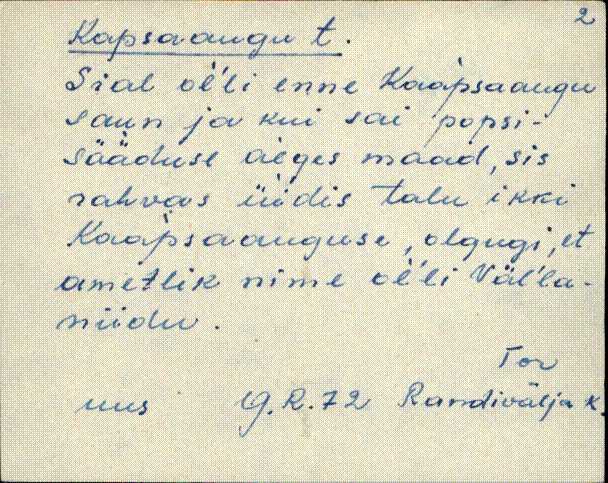 2
Kapsaaugu t.
Sial oĺ'li enne Kaapsaaugu
saun ja kui sai popsi-
sääduse aéges maad, sis
rahvas üidis talu ikki
Kaapsaauguse, olgugi, et
ametlik nime oĺ'li Väĺ'la-
niidu.
Tor
uus G.R.72 Randivälja k.